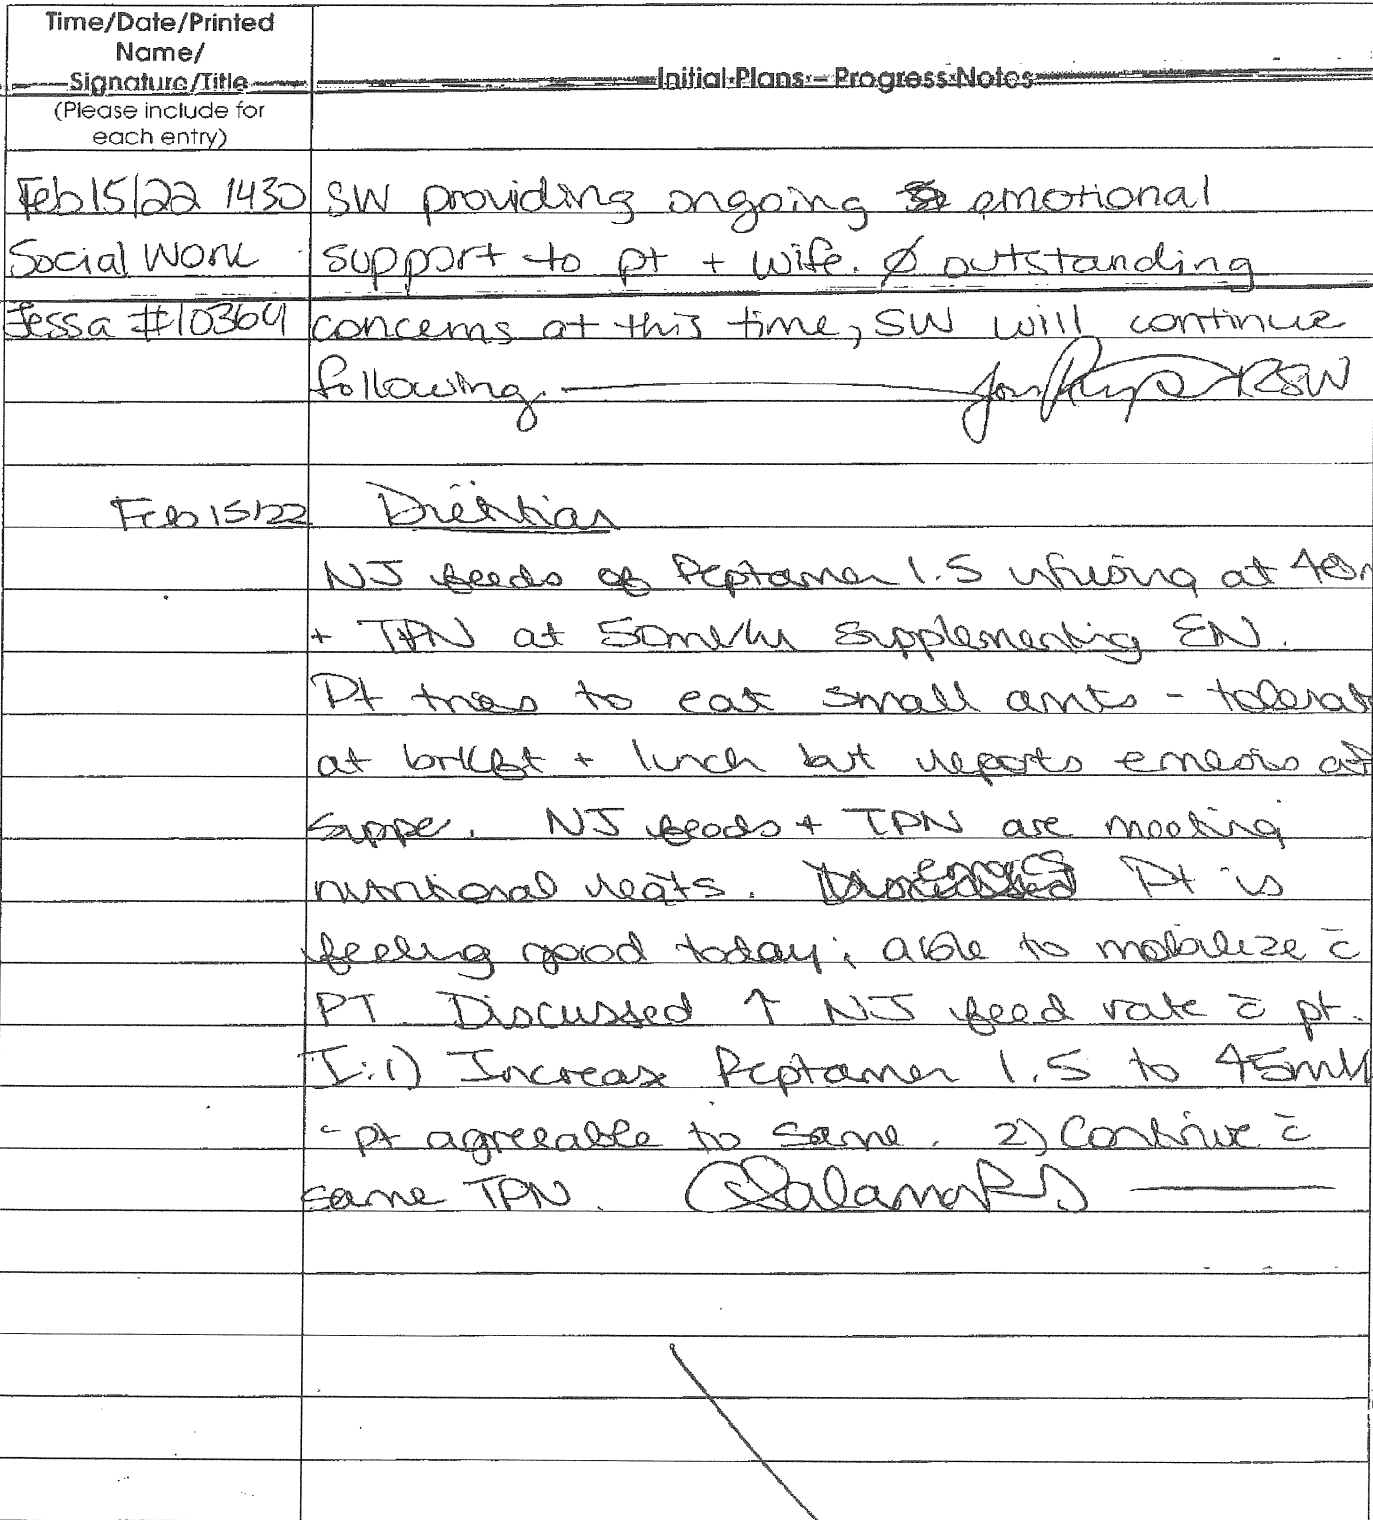 Time/Date/Printed
Name/
Signature/Title
(Please include for
each entry)
Initial Plans - Progress Notes
Feb 15/22 1430
Social Work
Jessa #10364
SW providing ongoing emotional
support to pt + wife. Ø outstanding
concerns at this time, SW will continue
following. RSW
Feb 15/22
Dietitian
NJ feeds of Peptamen 1.5 infusing at
+ TPN at 50ml/hr supplementing EN.
Pt tries to eat small amts - tolerat
at brkfst + lunch but reports emesis at
supper. NJ feeds + TPN are meeting
nutritional reqts. Pt is
feeling good today; able to mobilize c̄
PT Discussed ↑ NJ feed rate c̄ pt.
I: 1) Increase Peptamen 1.5 to 45ml/
- pt agreeable to same. 2) Continue c̄
same TPN. RD